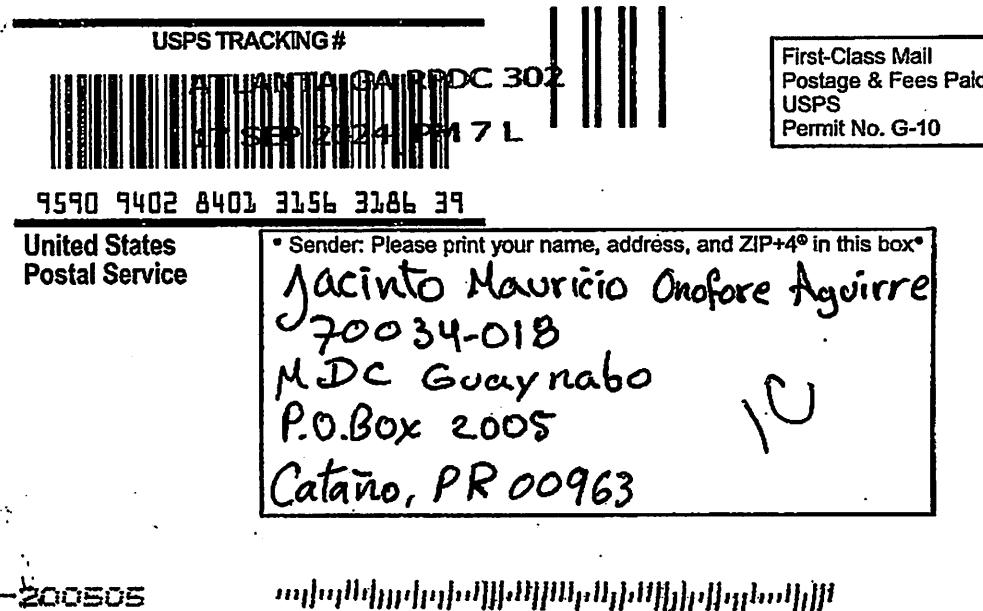 USPS TRACKING #
ATLANTA GA RPDC 302
17 SEP 2024 PM 7 L
9590 9402 8401 3156 3186 39
First-Class Mail
Postage & Fees Paid
USPS
Permit No. G-10
United States
Postal Service
• Sender: Please print your name, address, and ZIP+4® in this box•
Jacinto Mauricio Onofore Aguirre
70034-018
MDC Guaynabo
P.O.Box 2005
Cataño, PR 00963
1C
-200505